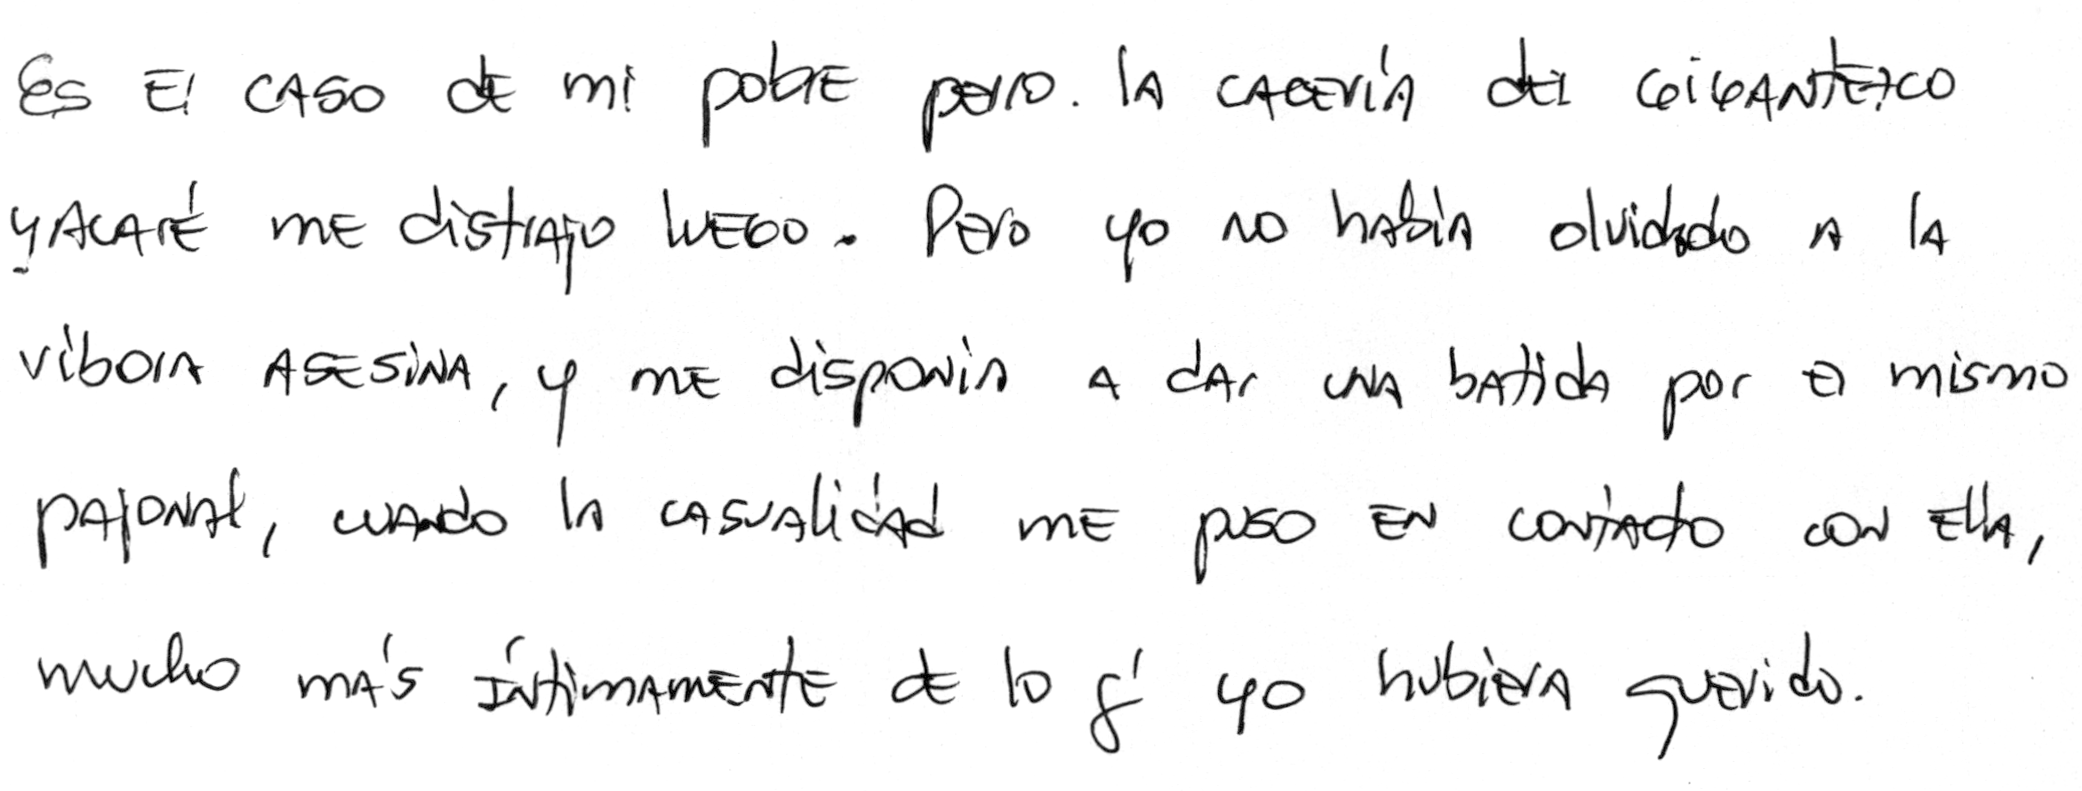 Es el caso de mi pobre perro. la cacería del gigantesco
yacaré me distrajo luego. Pero yo no había olvidado a la
víbora asesina, y me disponía a dar una batida por el mismo
pajonal, cuando la casualidad me puso en contacto con ella,
mucho más íntimamente de lo q' yo hubiera querido.